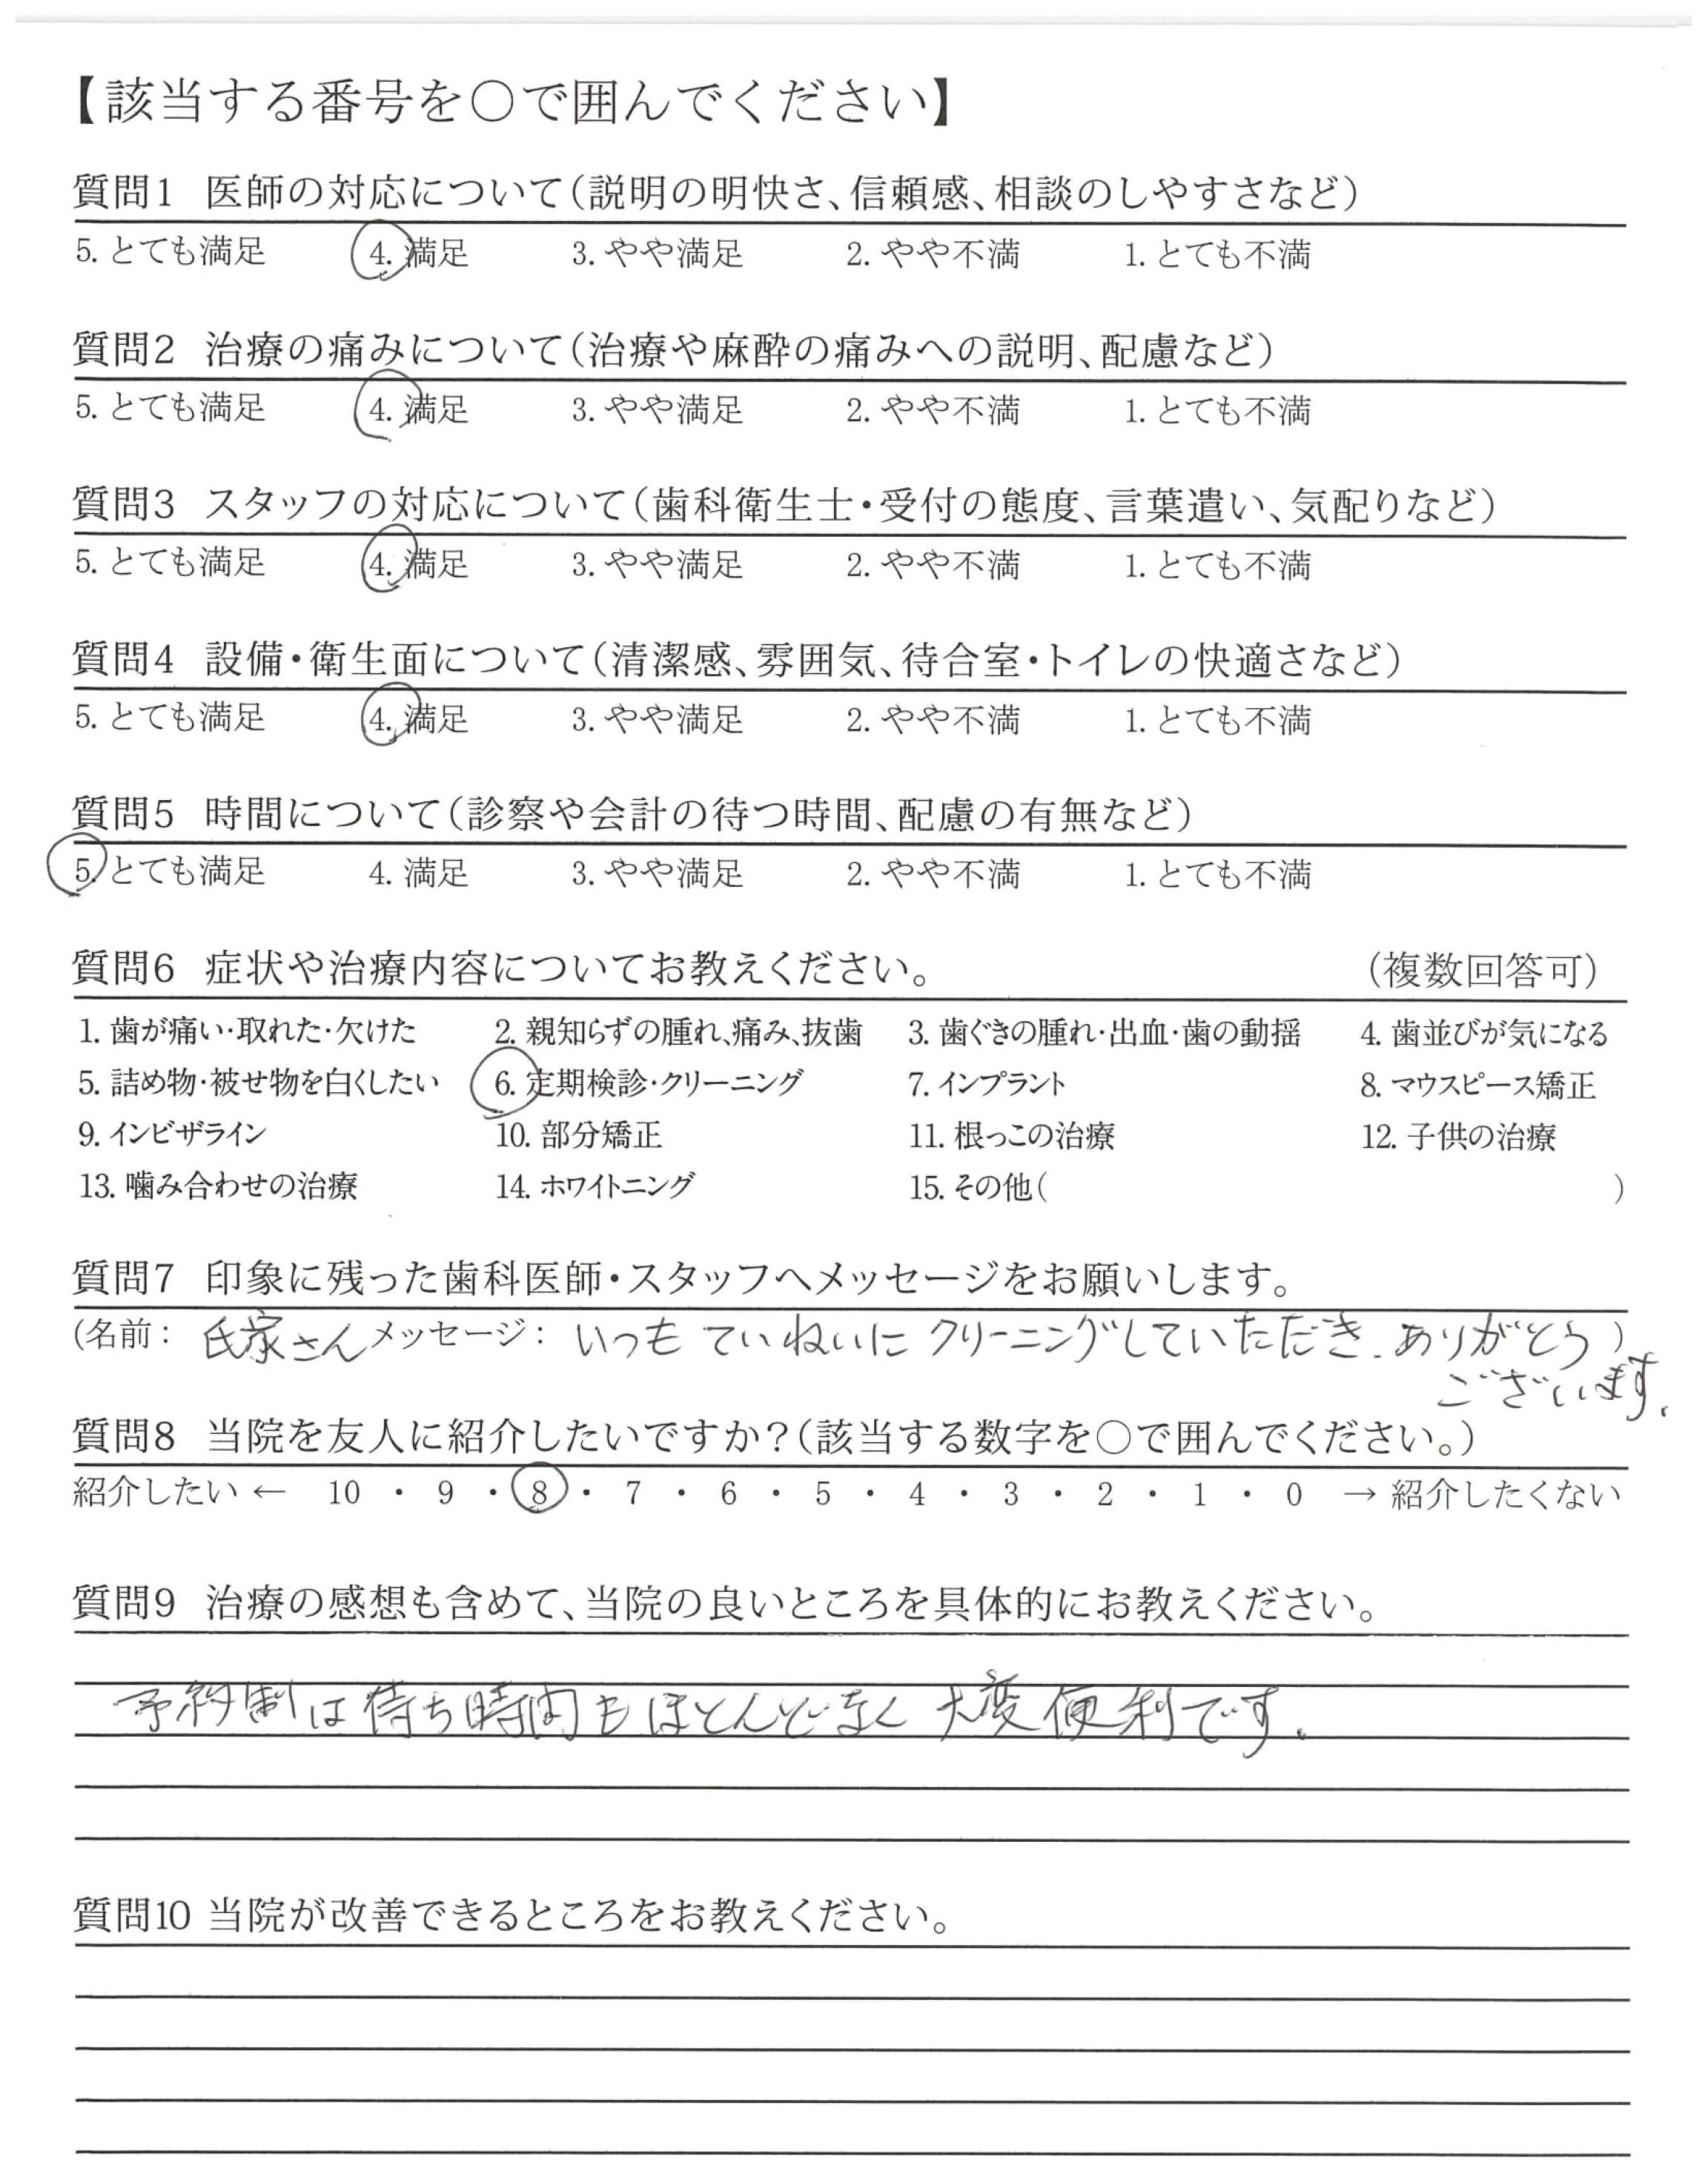 【該当する番号を○で囲んでください】
質問1 医師の対応について(説明の明快さ、信頼感、相談のしやすさなど)
5. とても満足 4. 満足 3. やや満足 2. やや不満 1. とても不満
質問2 治療の痛みについて(治療や麻酔の痛みへの説明、配慮など)
5. とても満足 4. 満足 3. やや満足 2. やや不満 1. とても不満
質問3 スタッフの対応について(歯科衛生士・受付の態度、言葉遣い、気配りなど)
5. とても満足 4. 満足 3. やや満足 2. やや不満 1. とても不満
質問4 設備・衛生面について(清潔感、雰囲気、待合室・トイレの快適さなど)
5. とても満足 4. 満足 3. やや満足 2. やや不満 1. とても不満
質問5 時間について(診察や会計の待つ時間、配慮の有無など)
5. とても満足 4. 満足 3. やや満足 2. やや不満 1. とても不満
質問6 症状や治療内容についてお教えください。 (複数回答可)
1. 歯が痛い・取れた・欠けた 2. 親知らずの腫れ、痛み、抜歯 3. 歯ぐきの腫れ・出血・歯の動揺 4. 歯並びが気になる
5. 詰め物・被せ物を白くしたい 6. 定期検診・クリーニング 7. インプラント 8. マウスピース矯正
9. インビザライン 10. 部分矯正 11. 根っこの治療 12. 子供の治療
13. 噛み合わせの治療 14. ホワイトニング 15. その他( )
質問7 印象に残った歯科医師・スタッフへメッセージをお願いします。
(名前: 氏家さん メッセージ: いつも ていねいに クリーニングしていただき、ありがとう)
ございます。
質問8 当院を友人に紹介したいですか?(該当する数字を○で囲んでください。)
紹介したい ← 10 ・ 9 ・ 8 ・ 7 ・ 6 ・ 5 ・ 4 ・ 3 ・ 2 ・ 1 ・ 0 → 紹介したくない
質問9 治療の感想も含めて、当院の良いところを具体的にお教えください。
予約制は待ち時間もほとんどなく 大変便利です。
質問10 当院が改善できるところをお教えください。